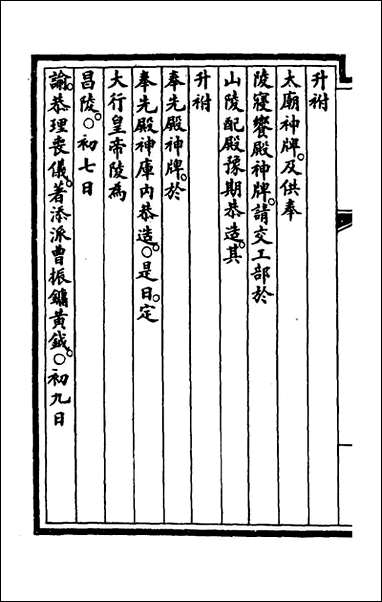 升祔
太廟神牌。及供奉
陵寢饗殿神牌。請交工部於
山陵配殿豫期恭造。其
升祔
奉先殿神牌。於
奉先殿神庫內恭造。○是日。定
大行皇帝陵為
昌陵。○初七日
諭。恭理喪儀。著添派曹振鏞黃鉞。○初九日